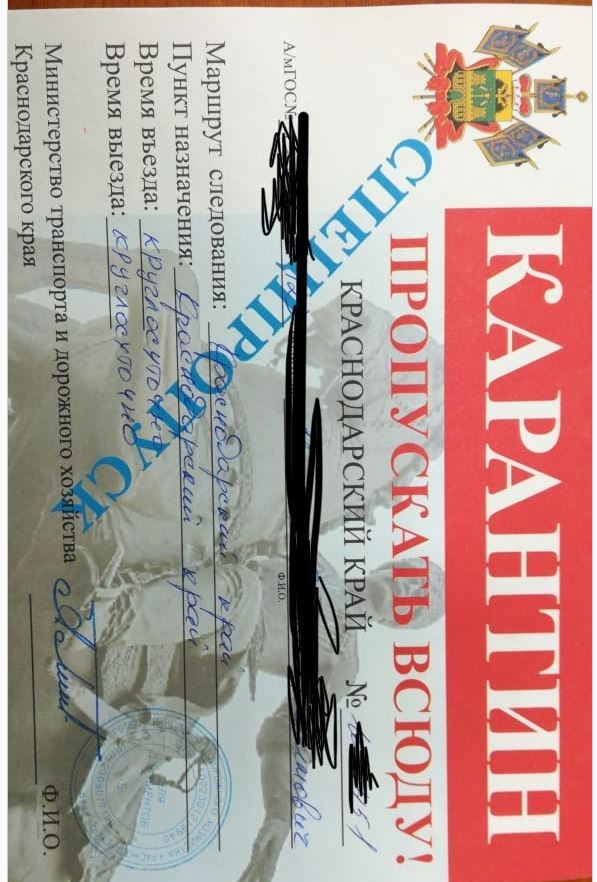 КАРАНТИН
ПРОПУСКАТЬ ВСЮДУ!
КРАСНОДАРСКИЙ КРАЙ №
А/мГОС№
Ф.И.О.
СПЕЦПРОПУСК
Маршрут следования: Краснодарский край
Пункт назначения: Краснодарский край
Время въезда: круглосуточно
Время выезда: круглосуточно
Министерство транспорта и дорожного хозяйства
Краснодарского края
Ф.И.О.